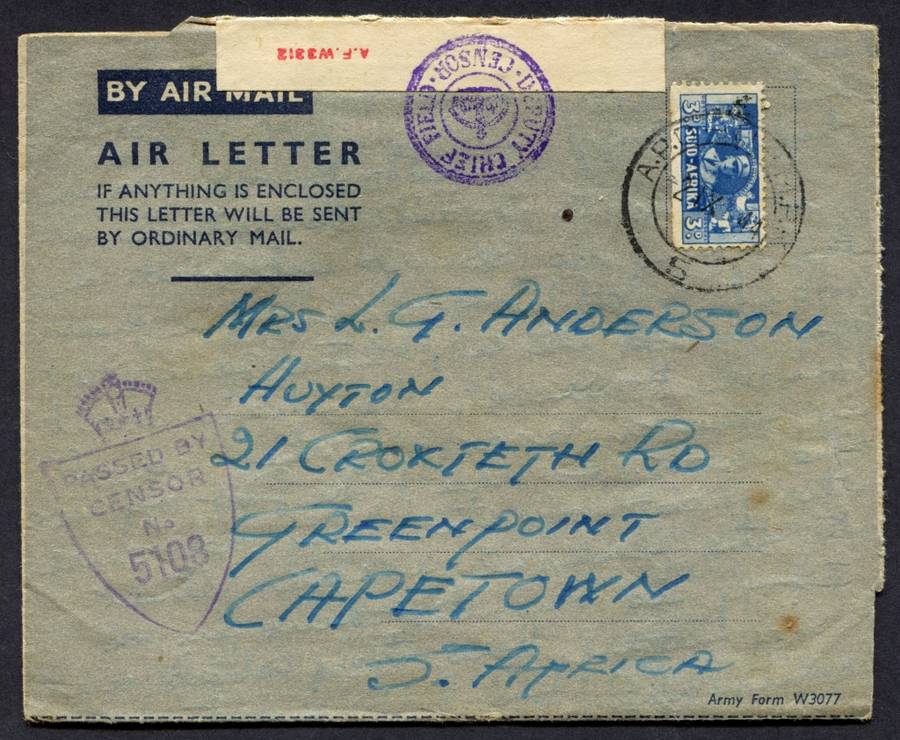 A.F.W3312
DEPUTY CHIEF FIELD CENSOR
BY AIR MAIL
AIR LETTER
IF ANYTHING IS ENCLOSED
THIS LETTER WILL BE SENT
BY ORDINARY MAIL.
3D SUID-AFRIKA 3D
5
MRS L. G. ANDERSON
HUYTON
21 CROXTETH RD
GREENPOINT
CAPETOWN
S. AFRICA
PASSED BY
CENSOR
No
5108
Army Form W3077